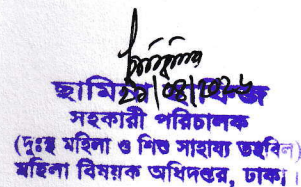 ছামিনা হাফিজ
সহকারী পরিচালক
(দুঃস্থ মহিলা ও শিশু সাহায্য তহবিল)
মহিলা বিষয়ক অধিদপ্তর, ঢাকা।